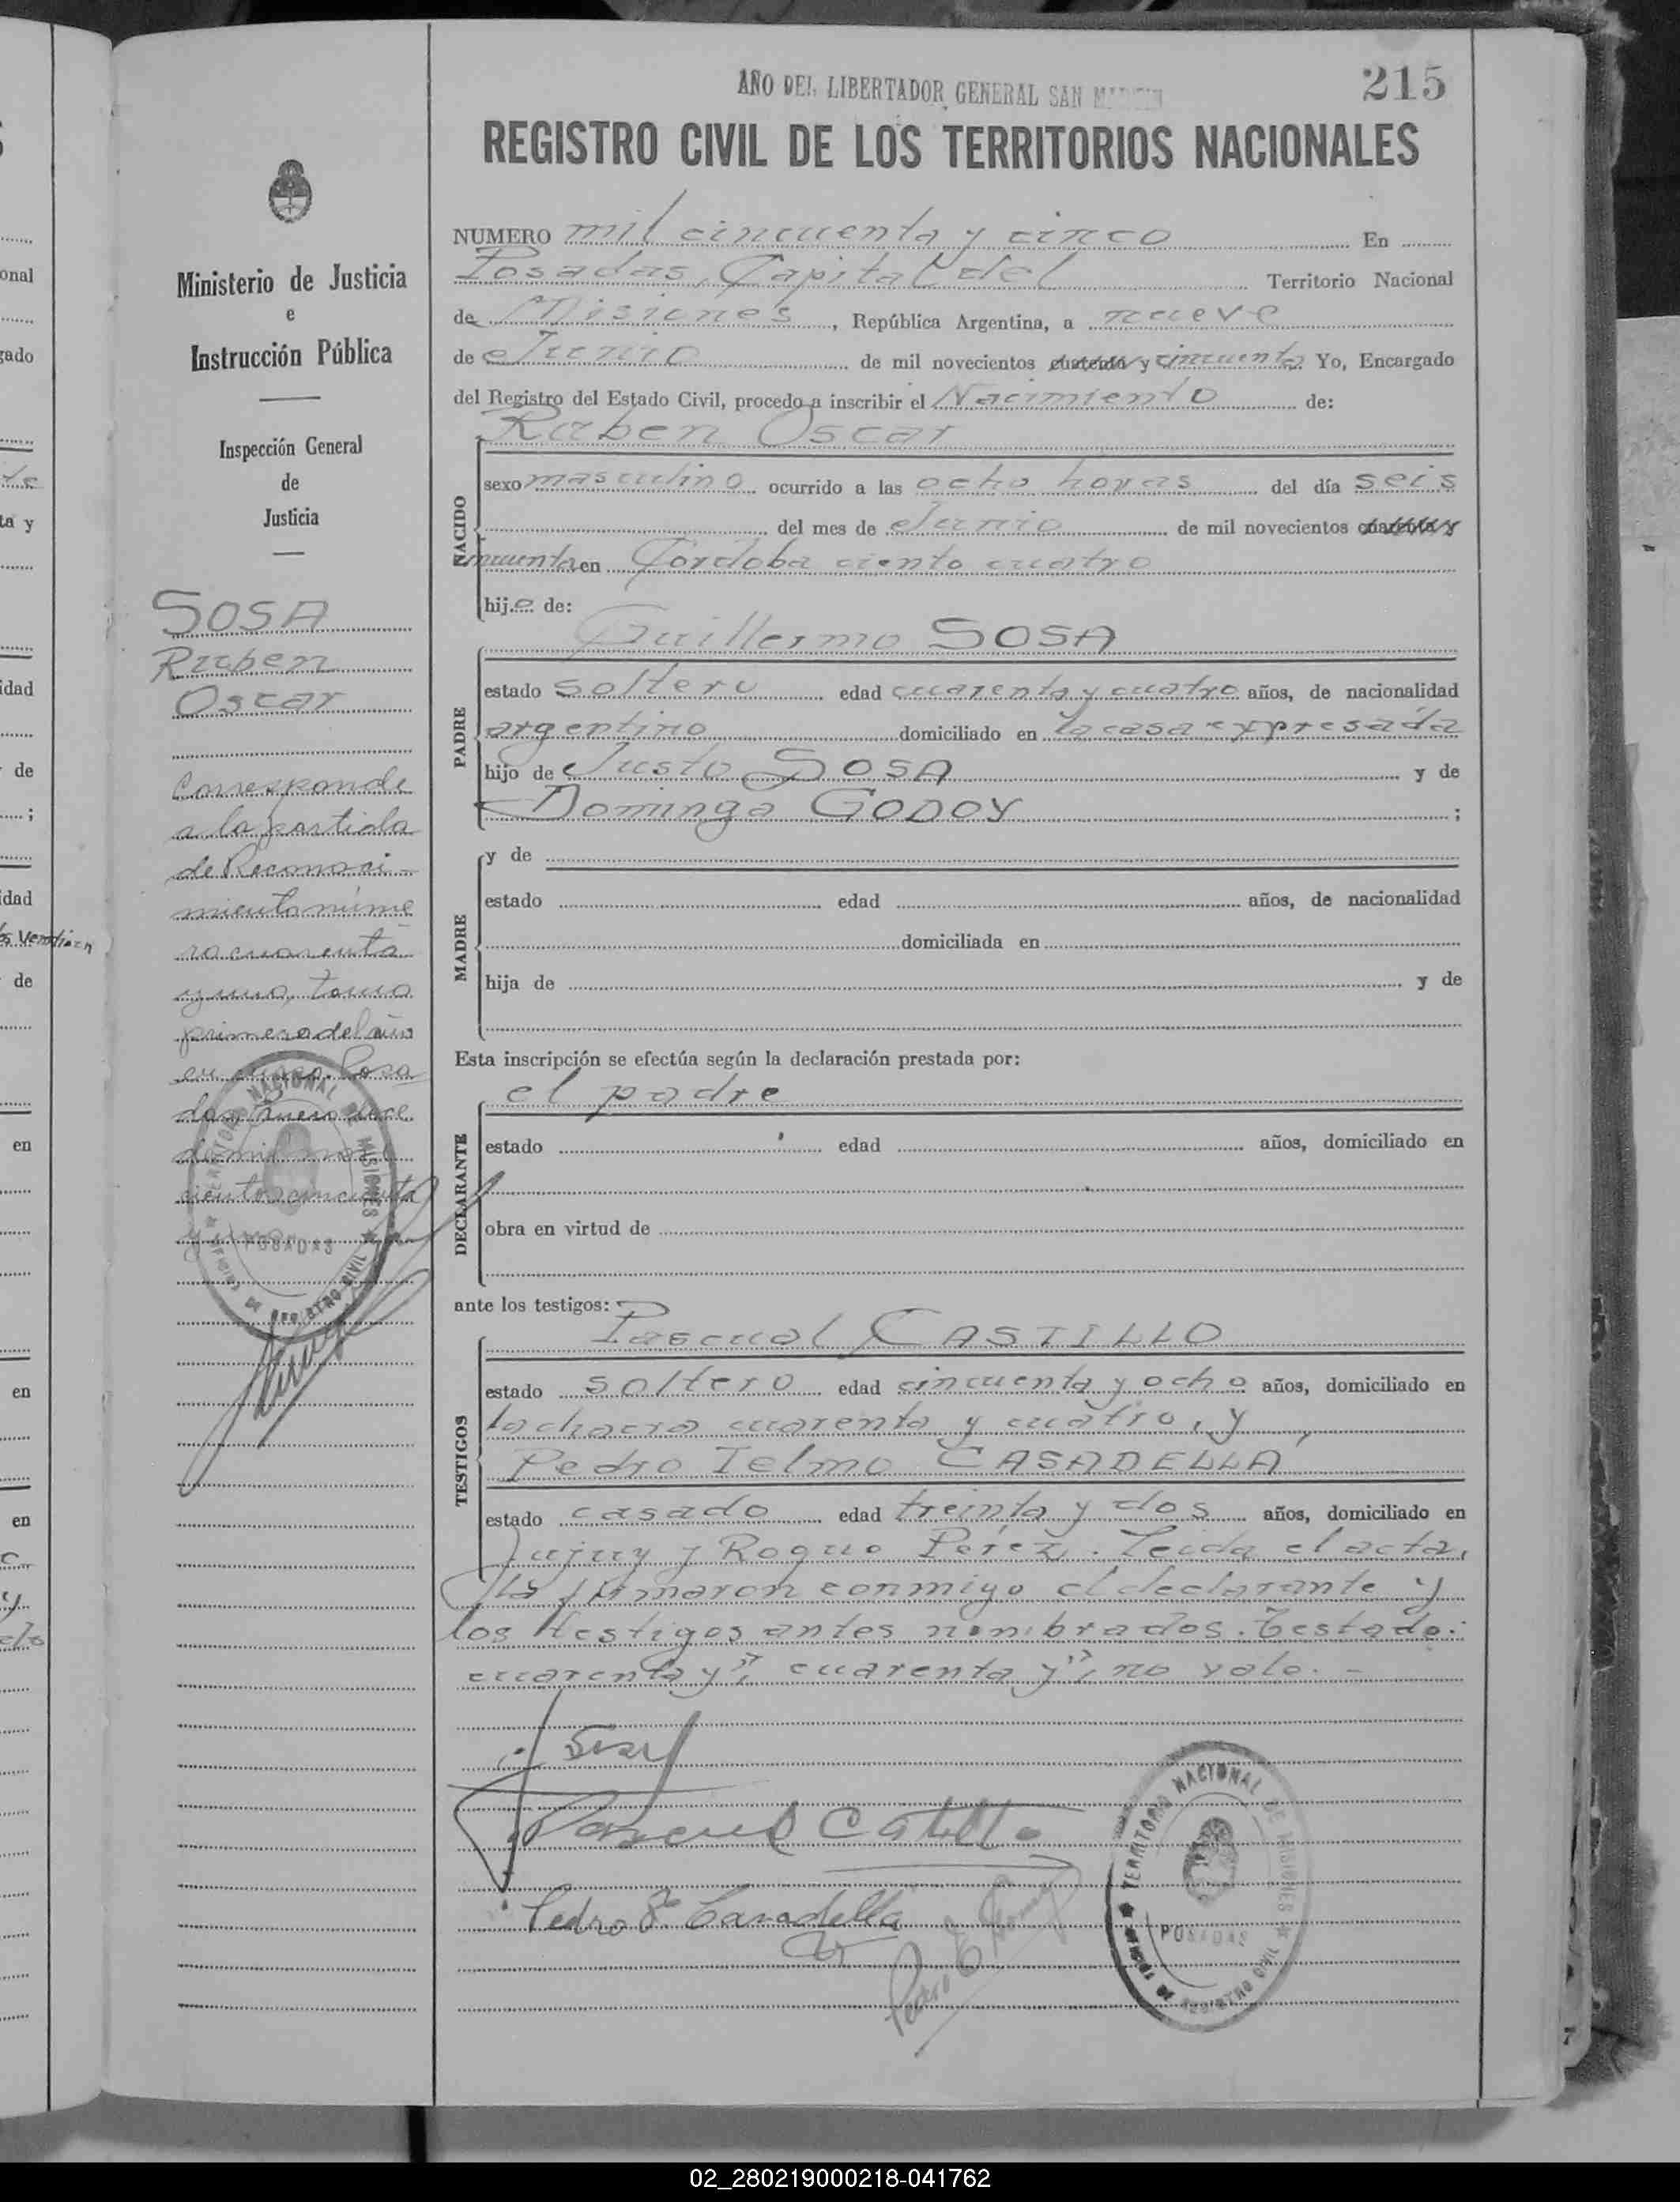 AÑO DEL LIBERTADOR GENERAL SAN MARTIN
215
REGISTRO CIVIL DE LOS TERRITORIOS NACIONALES
Ministerio de Justicia
e
Instrucción Pública
Inspección General
de
Justicia
SOSA
Ruben
Oscar
Corresponde
a la partida
de Reconoci-
miento núme
ro cuarenta
y uno, tomo
primero del año
en curso. Posa
das, enero doce
de mil nove
cientos cincuenta
y uno
TERRITORIO NACIONAL DE MISIONES
POSADAS
OFICINA DE REGISTRO CIVIL
NUMERO mil cincuenta y cinco En
Posadas, Capital del Territorio Nacional
de Misiones, República Argentina, a nueve
de Junio de mil novecientos cuarenta y cincuenta Yo, Encargado
del Registro del Estado Civil, procedo a inscribir el Nacimiento de:
Ruben Oscar
NACIDO
sexo masculino ocurrido a las ocho horas del día seis
del mes de Junio de mil novecientos cuarenta y
cincuenta en Córdoba ciento cuatro
hijo de:
Guillermo SOSA
PADRE
estado soltero edad cuarenta y cuatro años, de nacionalidad
argentino domiciliado en la casa expresada
hijo de Justo SOSA y de
Dominga GODOY ;
MADRE
y de
estado edad años, de nacionalidad
domiciliada en
hija de y de
Esta inscripción se efectúa según la declaración prestada por:
el padre
DECLARANTE
estado edad años, domiciliado en
obra en virtud de
ante los testigos:
Pascual CASTILLO
TESTIGOS
estado soltero edad cincuenta y ocho años, domiciliado en
la chacra cuarenta y cuatro, y
Pedro Telmo CASADELLA,
estado casado edad treinta y dos años, domiciliado en
Jujuy y Roque Perez. Leida el acta,
la firmaron conmigo el declarante y
los testigos antes nombrados. Testado:
cuarenta y", cuarenta y", no vale.-
Pascual Castillo
Pedro T. Casadella
TERRITORIO NACIONAL DE MISIONES
POSADAS
OFICINA DE REGISTRO CIVIL
onal
gado
ta y
idad
de
;
idad
de
en
en
en
02_280219000218-041762